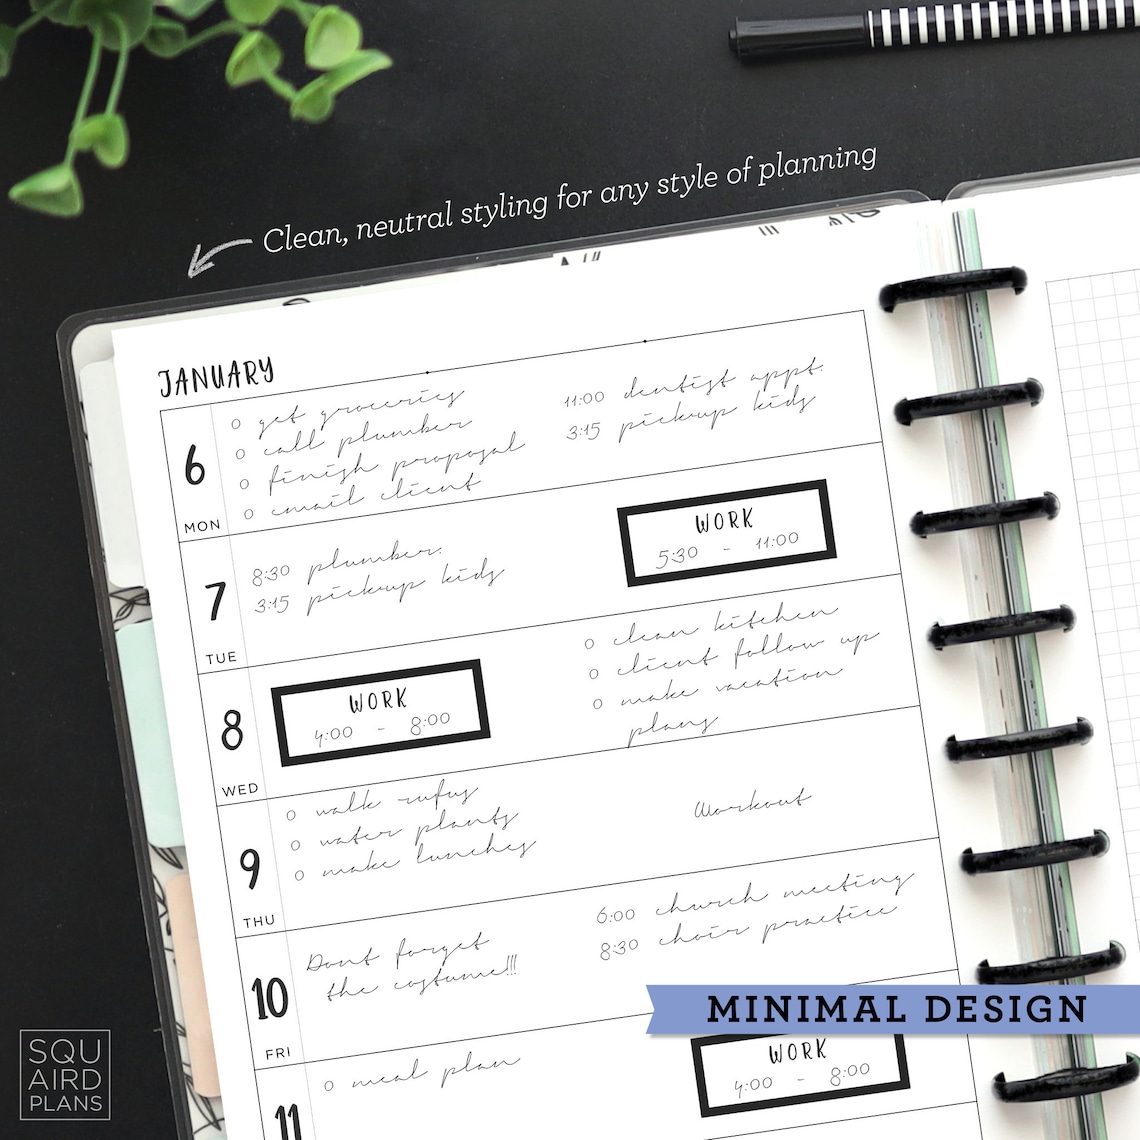 Clean, neutral styling for any style of planning
JANUARY
6
MON
o get groceries
o call plumber
o finish proposal
o email client
11:00 dentist appt.
3:15 pickup kids
7
TUE
8:30 plumber.
3:15 pickup kids
WORK
5:30 - 11:00
8
WED
WORK
4:00 - 8:00
o clean kitchen
o client follow up
o make vacation
plans
9
THU
o walk rufus
o water plants
o make lunches
Workout
10
FRI
Dont forget
the costume!!!
6:00 church meeting
8:30 choir practice
MINIMAL DESIGN
11
o meal plan
WORK
4:00 - 8:00
SQU
AIRD
PLANS